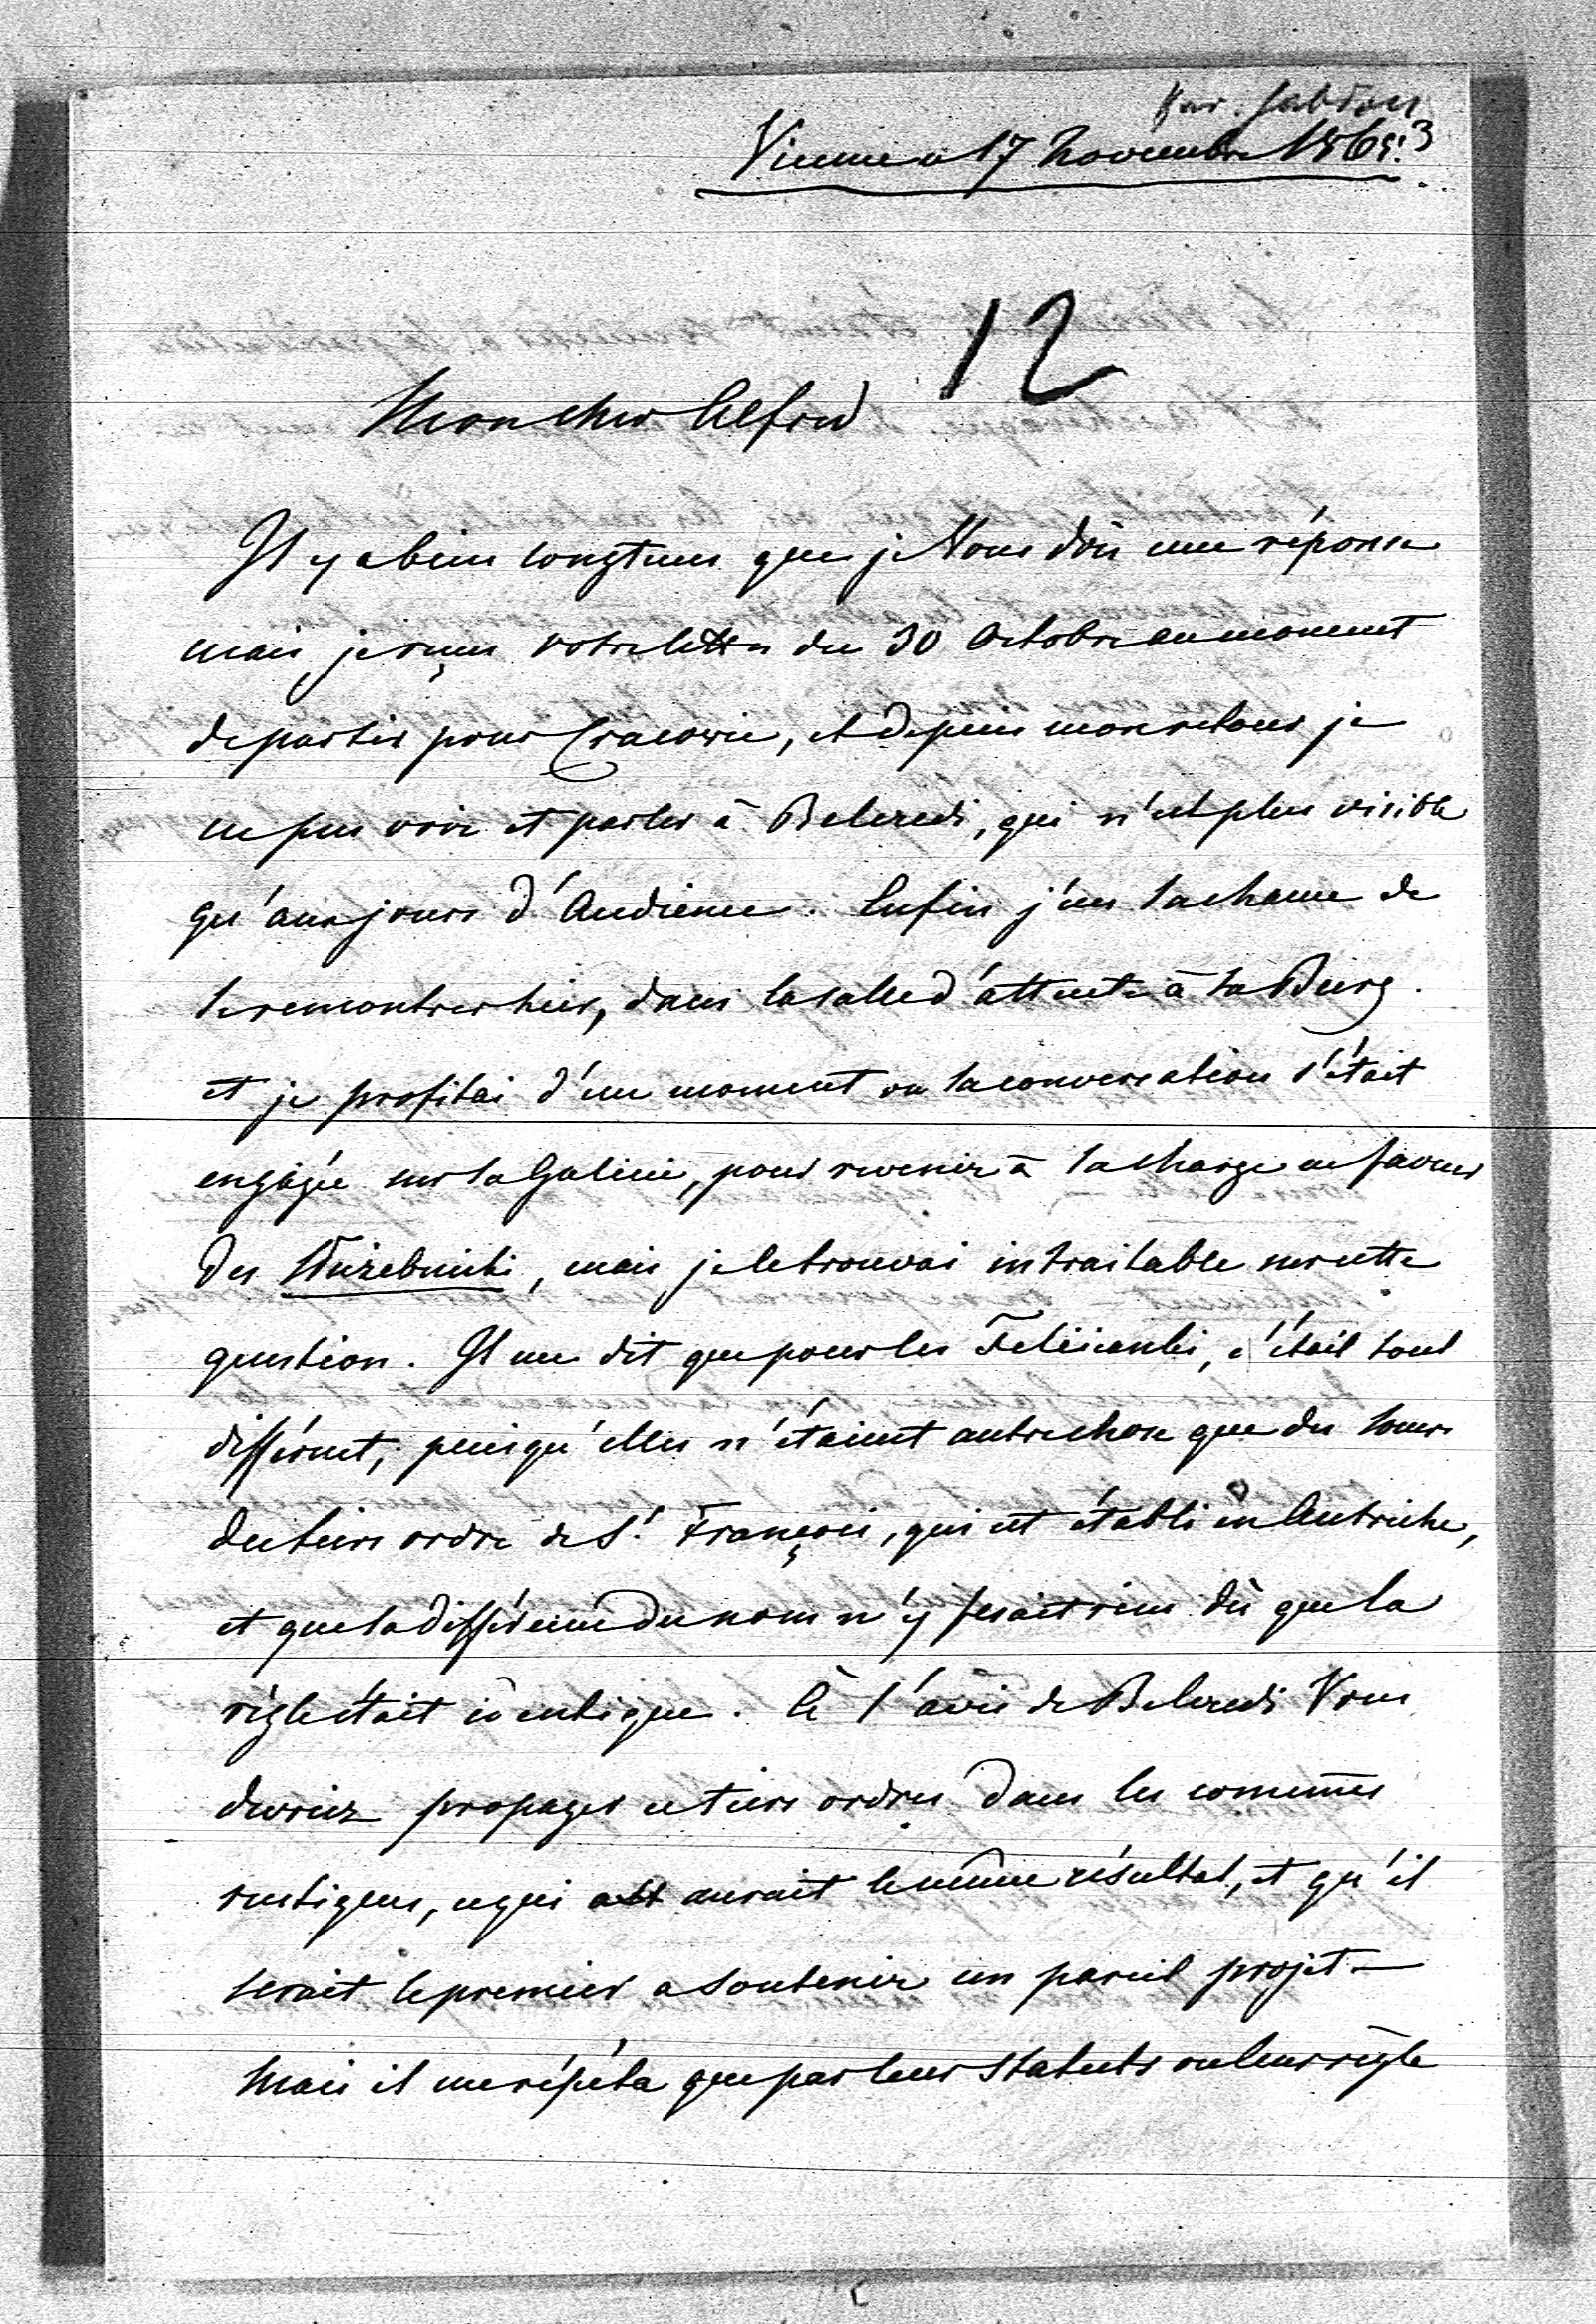 Kar. Jabłon
Vienne a 17 Novembre 1865. 3
12
Mon cher Alfred
Il y a bien longtems que je Vous dois une réponse
mais je reçus votre lettre du 30 Octobre au moment
de partir pour Cracovie, et depuis mon retour je
ne pus voir et parler à Belcredi, qui n'est plus visible
qu'aux jours d'Audience. Enfin j'eus la chance de
le rencontrer hier, dans la salle d'attente à la Burg.
et je profitai d'un moment ou la conversation s'était
engagée sur la Galicie, pour revenir à la charge en faveur
des Służebniki, mais je le trouvai intraitable sur cette
question. Il me dit que pour les Felicianki, c'était tout
différent, puisqu'elles n'étaient autre chose que des soeurs
du tiers ordre de St. François, qui est établi en Autriche,
et que la différence du nom n'y fesait rien dès que la
règle était identique. A l'avis de Belcredi Vous
devriez propager ce tiers ordre dans les comunes
rustiques, ce qui aurait le même résultat, et qu'il
serait le premier a soutenir un pareil projet —
Mais il me répéta que par leur statuts ou leur règle